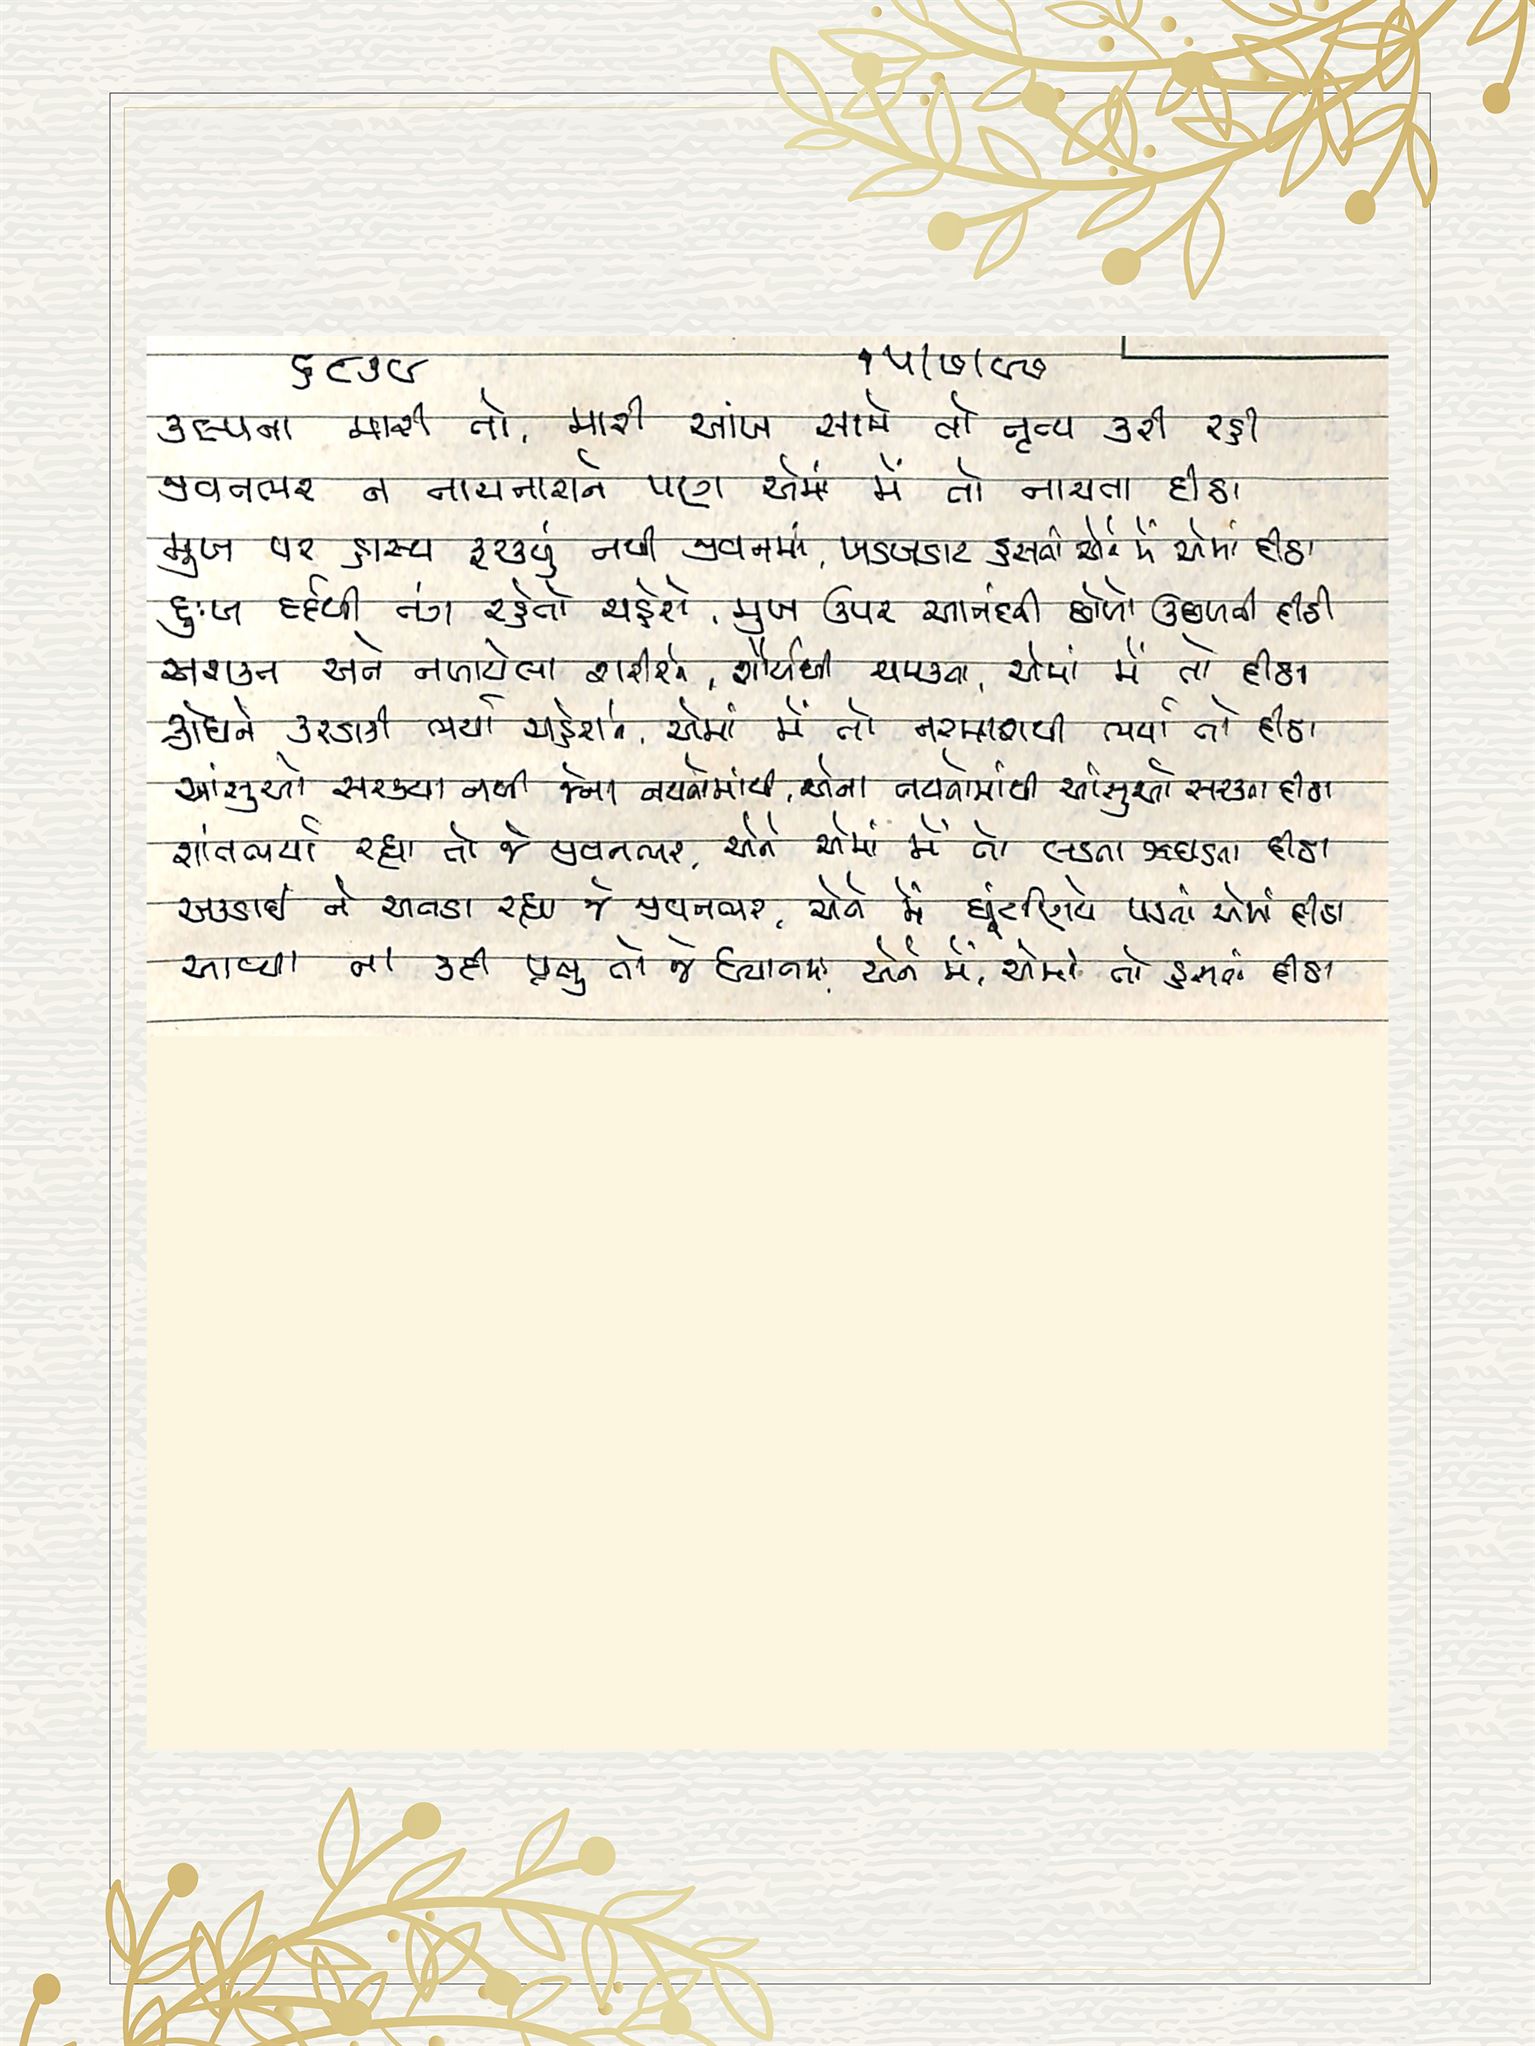 ૬૮૭૯ ૧૫/૭/૯૭
કલ્પના મારી તો, મારી આંખ સામે તો નૃત્ય કરી રહી
જીવનભર ન નાચનારાને પણ એમાં મેં તો નાચતા દીઠા
મુખ પર હાસ્ય ફરક્યું નથી જીવનમાં, ખડખડાટ હસતાં એને મેં એમાં દીઠા
દુઃખ દર્દથી તંગ રહેતો ચહેરો, મુખ ઉપર આનંદની છોળો ઉછળતી દીઠી
અશક્ત અને નબાયેલા શરીરને, શૌર્યથી ચમકતા, એમાં મેં તો દીઠા
ક્રોધને કરડાકી ભર્યા ચહેરાને, એમાં મેં તો નરમાશથી ભર્યા તો દીઠા
આંસુઓ સરક્યા નથી જેના નયનોમાંથી, એના નયનોમાંથી આંસુઓ સરકતા દીઠા
શાંતભર્યા રહ્યા તો જે જીવનભર, એને એમાં મેં તો લડતા ઝઘડતા દીઠા
અકડાઈ ને અક્કડ રહ્યા જે જીવનભર, એને મેં ઘૂંટણિયે પડતાં એમાં દીઠા
આવ્યા ના કદી પ્રભુ તો જે ધ્યાનમાં, એને મેં, એમાં તો હસતાં દીઠા